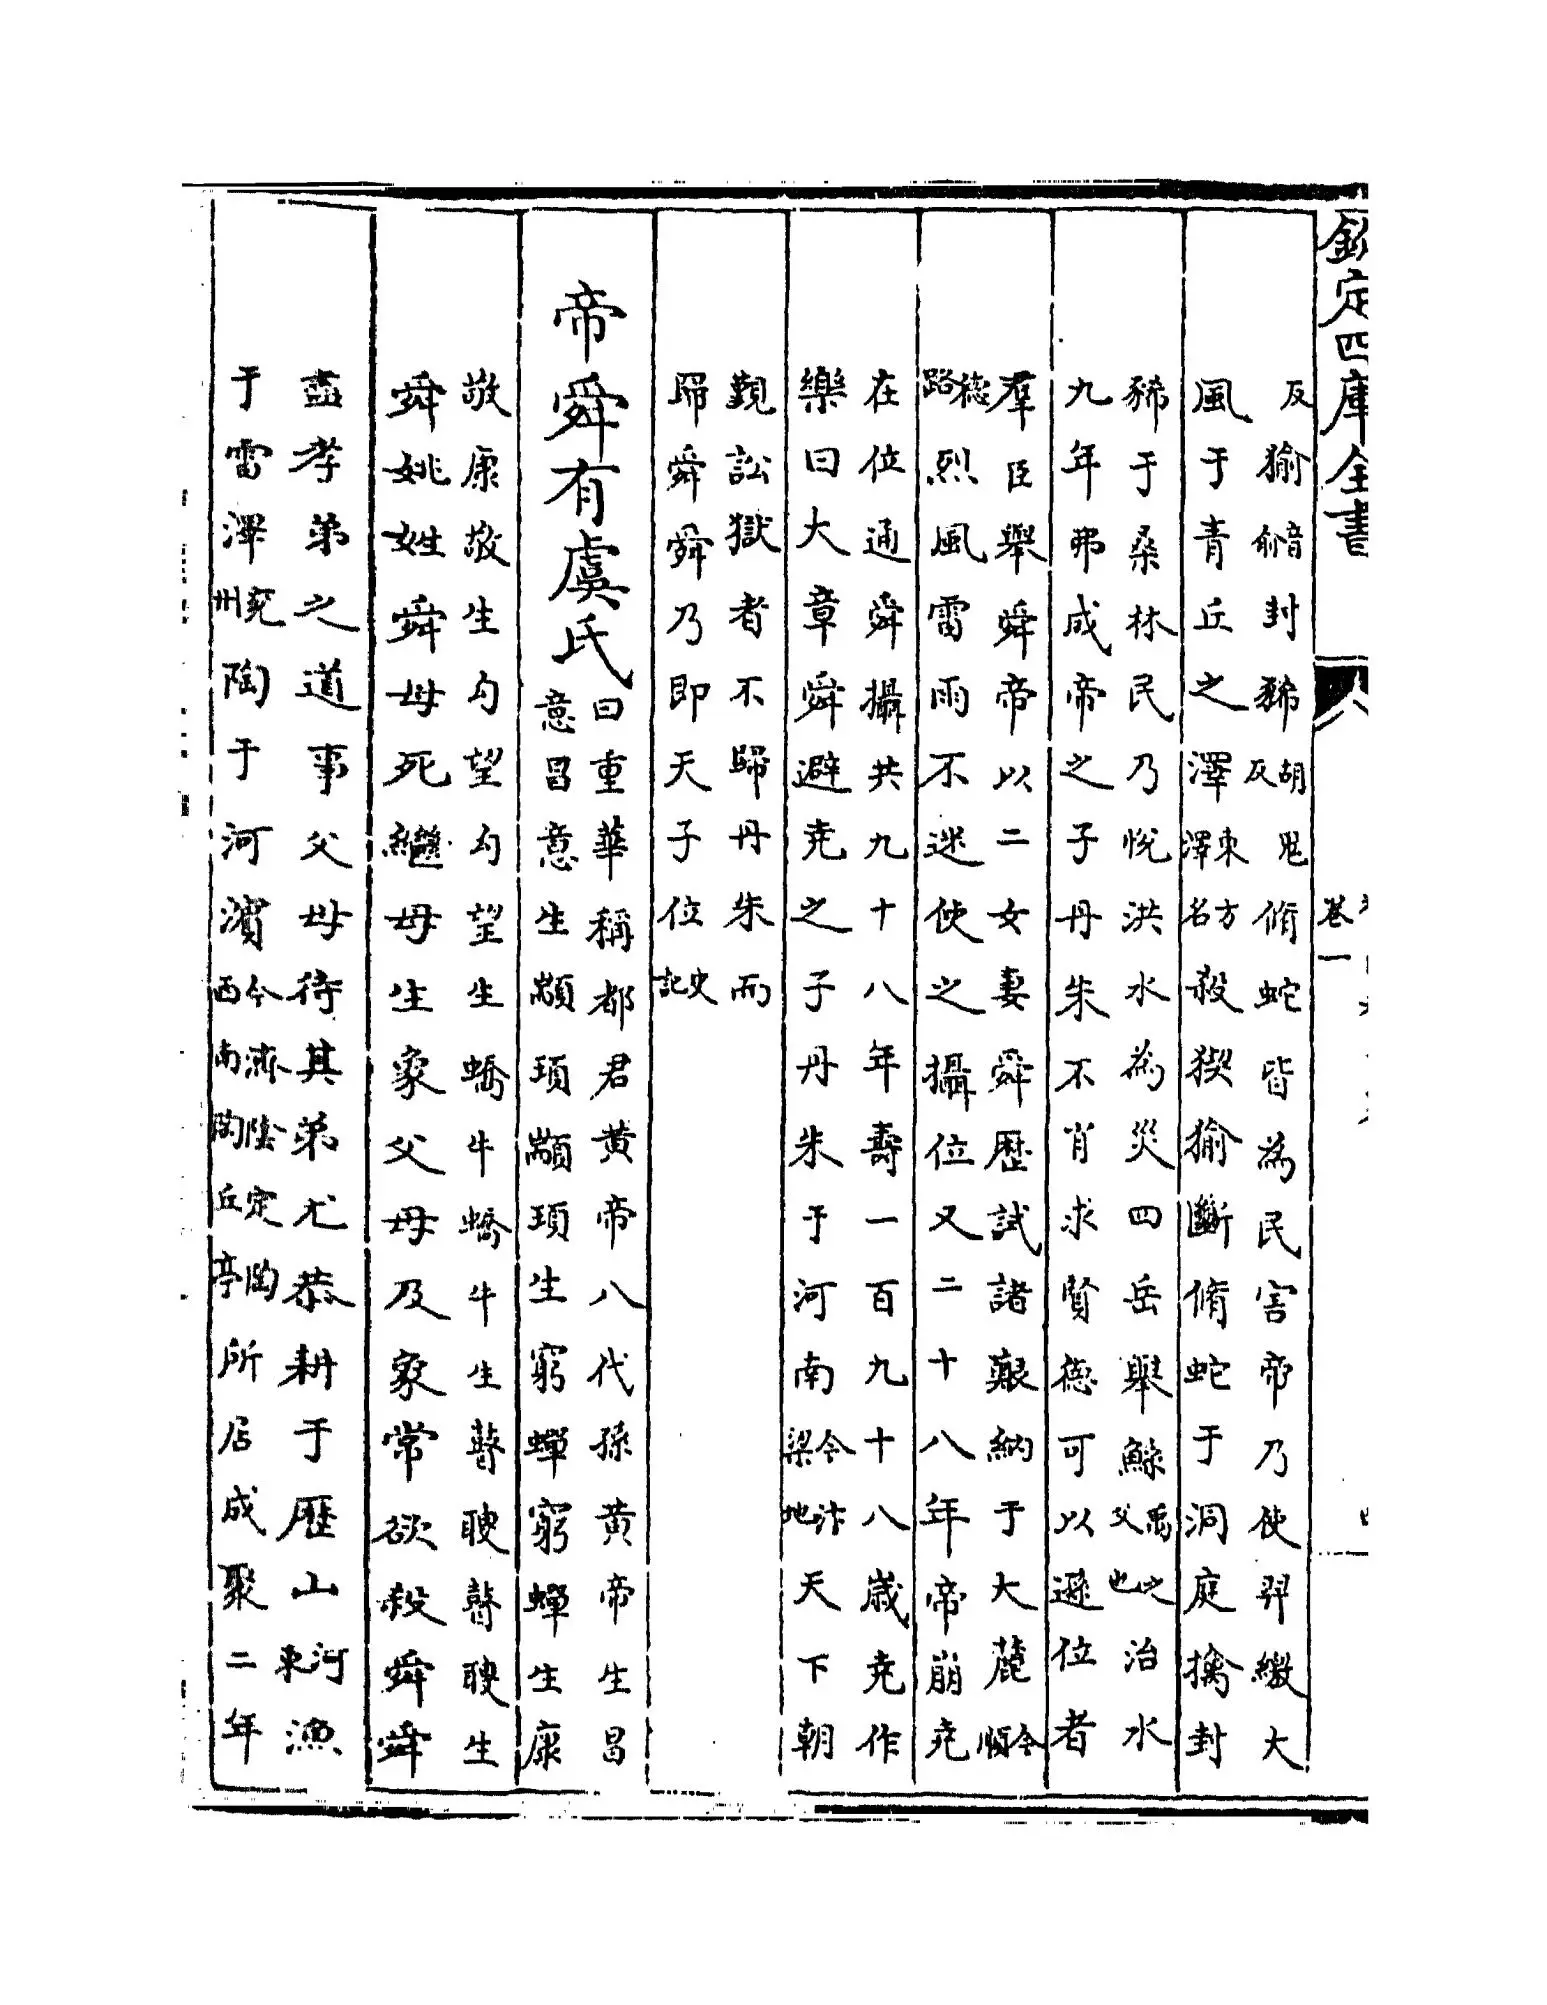 欽定四庫全書
卷一
反㺄音俞封豨胡鬼反脩蛇皆為民害帝乃使羿繳大
風于青丘之澤東方澤名殺猰㺄斷脩蛇于洞庭擒封
豨于桑林民乃悅洪水為災四岳舉鯀禹之父也治水
九年弗成帝之子丹朱不肖求賢德可以遜位者
羣臣舉舜帝以二女妻舜歷試諸艱納于大麓今順
德路烈風雷雨不迷使之攝位又二十八年帝崩尭
在位通舜攝共九十八年壽一百一十八歲尭作
樂曰大章舜避尭之子丹朱于河南今汴梁地天下朝
覲訟獄者不歸丹朱而
歸舜舜乃即天子位史記
帝舜有虞氏
曰重華稱都君黄帝八代孫黄帝生昌
意昌意生顓頊顓頊生窮蟬窮蟬生康
敬康敬生勾望勾望生蟜牛蟜牛生瞽瞍瞽瞍生
舜姚姓舜母死繼母生象父母及象常欲殺舜舜
盡孝弟之道事父母待其弟尤恭耕于歷山河東漁
于雷澤兖州陶于河濵今濟陰定陶西南陶丘亭所居成聚二年